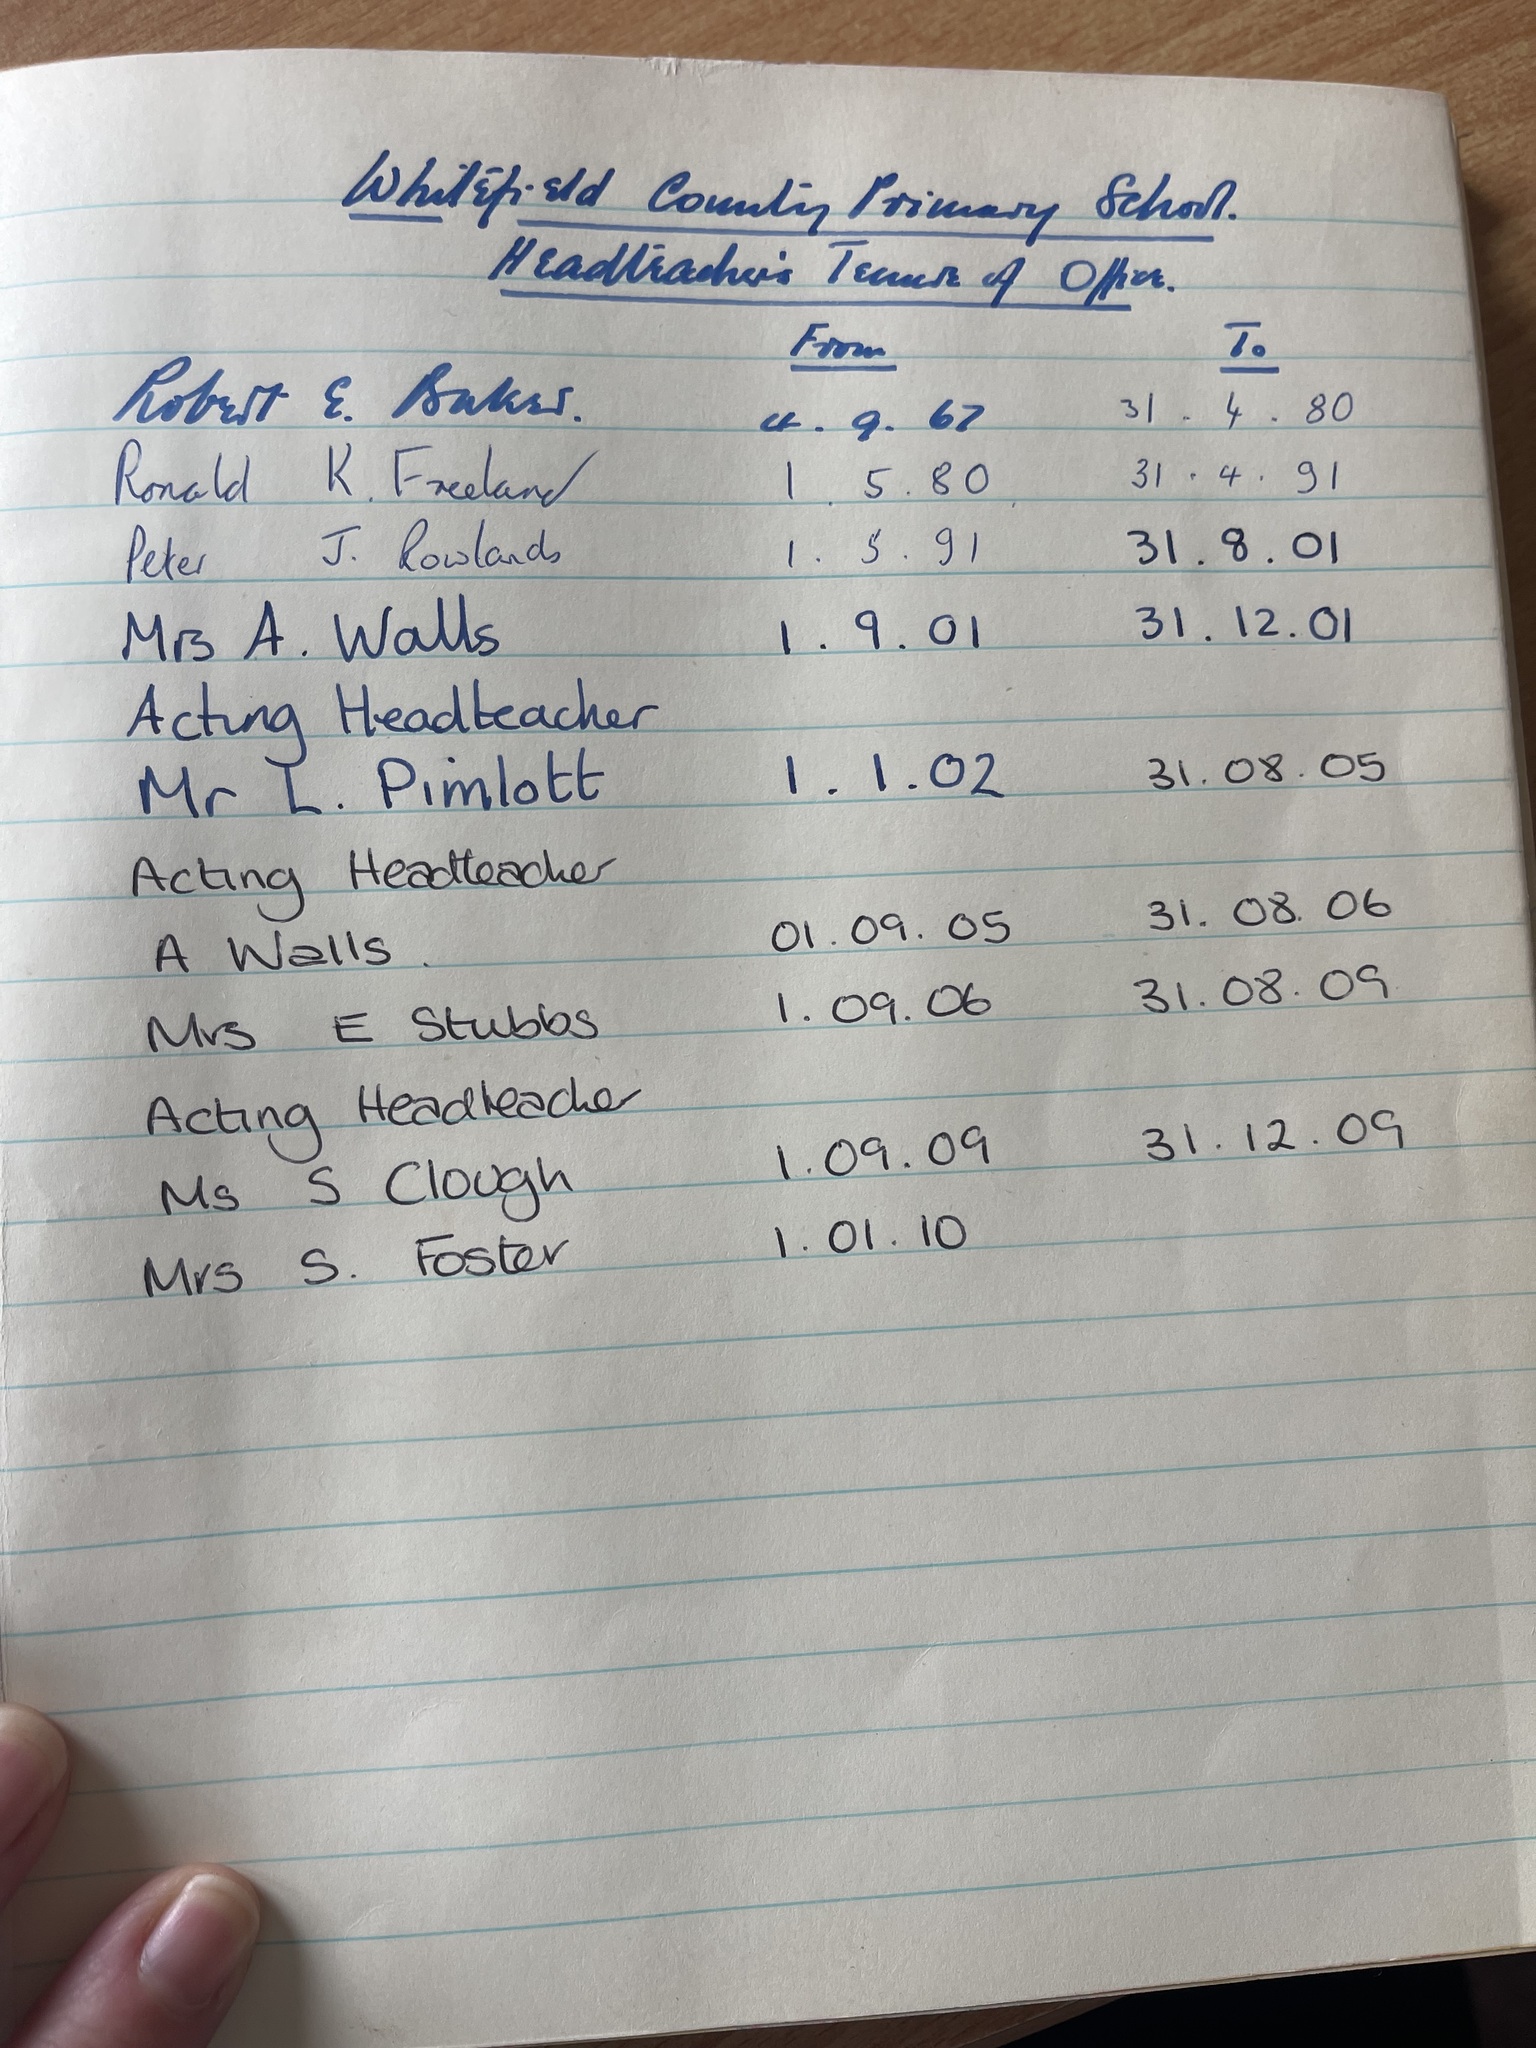 Whitefield County Primary School.
Headteacher's Tenure of Office.
From To
Robert E. Baker. 4.9.67 31.4.80
Ronald K. Freeland 1.5.80 31.4.91
Peter J. Rowlands 1.5.91 31.8.01
Mrs A. Walls 1.9.01 31.12.01
Acting Headteacher
Mr L. Pimlott 1.1.02 31.08.05
Acting Headteacher
A Walls. 01.09.05 31.08.06
Mrs E Stubbs 1.09.06 31.08.09
Acting Headteacher
Ms S Clough 1.09.09 31.12.09
Mrs S. Foster 1.01.10